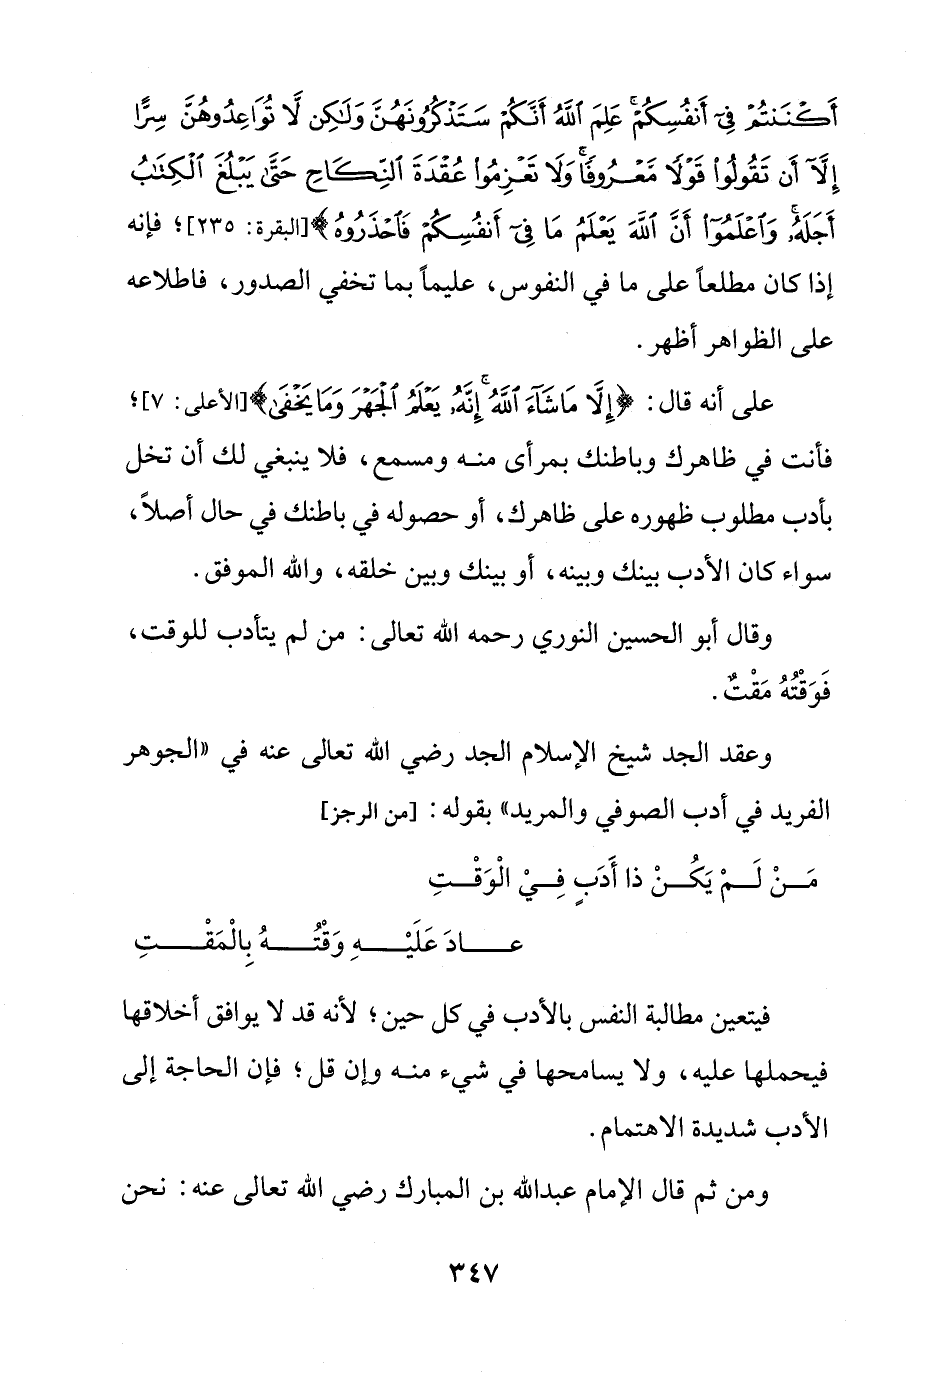 أَكۡنَنتُمۡ فِيٓ أَنفُسِكُمۡۚ عَلِمَ ٱللَّهُ أَنَّكُمۡ سَتَذۡكُرُونَهُنَّ وَلَٰكِن لَّا تُوَاعِدُوهُنَّ سِرًّا
إِلَّآ أَن تَقُولُواْ قَوۡلٗا مَّعۡرُوفٗاۚ وَلَا تَعۡزِمُواْ عُقۡدَةَ ٱلنِّكَاحِ حَتَّىٰ يَبۡلُغَ ٱلۡكِتَٰبُ
أَجَلَهُۥۚ وَٱعۡلَمُوٓاْ أَنَّ ٱللَّهَ يَعۡلَمُ مَا فِيٓ أَنفُسِكُمۡ فَٱحۡذَرُوهُ﴾ [البقرة: ٢٣٥]؛ فإنه
إذا كان مطلعاً على ما في النفوس، عليماً بما تخفي الصدور، فاطلاعه
على الظواهر أظهر.
على أنه قال: ﴿إِلَّا مَا شَآءَ ٱللَّهُۚ إِنَّهُۥ يَعۡلَمُ ٱلۡجَهۡرَ وَمَا يَخۡفَىٰ﴾ [الأعلى: ٧]؛
فأنت في ظاهرك وباطنك بمرأى منه ومسمع، فلا ينبغي لك أن تخل
بأدب مطلوب ظهوره على ظاهرك، أو حصوله في باطنك في حال أصلاً،
سواء كان الأدب بينك وبينه، أو بينك وبين خلقه، والله الموفق.
وقال أبو الحسين النوري رحمه الله تعالى: من لم يتأدب للوقت،
فَوَقْتُهُ مَقْتٌ.
وعقد الجد شيخ الإسلام الجد رضي الله تعالى عنه في «الجوهر
الفريد في أدب الصوفي والمريد» بقوله: [من الرجز]
مَــنْ لَــمْ يَكُــنْ ذا أَدَبٍ فِــيْ الْوَقْــتِ
عــادَ عَلَيْــهِ وَقْتُــهُ بِالْمَقْــتِ
فيتعين مطالبة النفس بالأدب في كل حين؛ لأنه قد لا يوافق أخلاقها
فيحملها عليه، ولا يسامحها في شيء منه وإن قل؛ فإن الحاجة إلى
الأدب شديدة الاهتمام.
ومن ثم قال الإمام عبدالله بن المبارك رضي الله تعالى عنه: نحن
٣٤٧